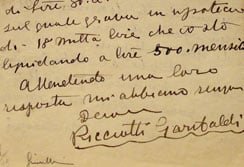 di lire 30.
sul quale grava un ipoteca
di 18 mila lire che io sto
liquidando a lire 500. mensili
Attenetendo una loro
risposta mi abbiano sempre
Devmo
Ricciotti Garibaldi